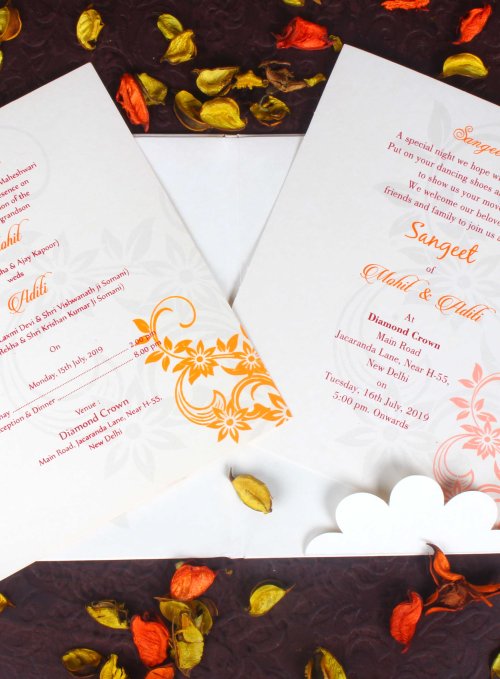 Maheshwari
presence on
of the
grandson
Mohil
& Ajay Kapoor)
weds
Aditi
Laxmi Devi & Shri Vishwanath Ji Somani)
Rekha & Shri Krishan Kumar Ji Somani)
On
Monday, 15th July, 2019
2.00 pm
Reception & Dinner 8.00 pm
Venue :
Diamond Crown
Main Road, Jacaranda Lane, Near H-55,
New Delhi
Sangeet
A special night we hope
Put on your dancing shoes
to show us your
We welcome our
friends and family to join us
Sangeet
of
Mohil & Aditi
At
Diamond Crown
Main Road
Jacaranda Lane, Near H-55,
New Delhi
on
Tuesday, 16th July, 2019
5:00 pm. Onwards